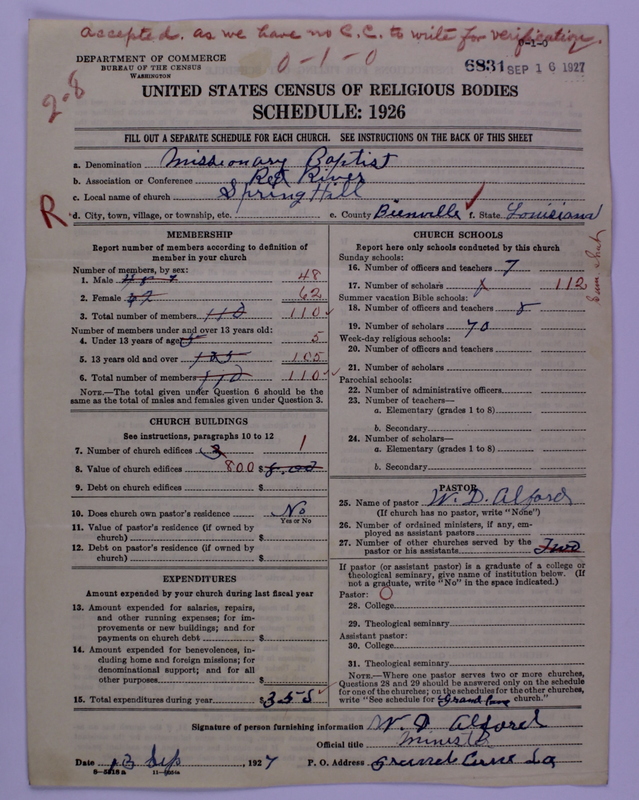 Accepted. as we have no C.C. to write for verification.
0-1-0
0-1-0
DEPARTMENT OF COMMERCE
BUREAU OF THE CENSUS
WASHINGTON
6831 SEP 16 1927
2-8
UNITED STATES CENSUS OF RELIGIOUS BODIES
SCHEDULE: 1926
FILL OUT A SEPARATE SCHEDULE FOR EACH CHURCH. SEE INSTRUCTIONS ON THE BACK OF THIS SHEET
a. Denomination Missionary Baptist
b. Association or Conference Red River
c. Local name of church Spring Hill
R *d. City, town, village, or township, etc. e. County Bienville f. State Louisiana
MEMBERSHIP
Report number of members according to definition of
member in your church
Number of members, by sex:
1. Male 48
2. Female 62
3. Total number of members 110 110
Number of members under and over 13 years old:
4. Under 13 years of age 5 5
5. 13 years old and over 105 105
6. Total number of members 110 110
NOTE.—The total given under Question 6 should be
the same as the total of males and females given under Question 3.
CHURCH BUILDINGS
See instructions, paragraphs 10 to 12
7. Number of church edifices 1
8. Value of church edifices 800 $
9. Debt on church edifices $
10. Does church own pastor's residence No
Yes or No
11. Value of pastor's residence (if owned by
church) $
12. Debt on pastor's residence (if owned by
church) $
EXPENDITURES
Amount expended by your church during last fiscal year
13. Amount expended for salaries, repairs,
and other running expenses; for im-
provements or new buildings; and for
payments on church debt $
14. Amount expended for benevolences, in-
cluding home and foreign missions; for
denominational support; and for all
other purposes $
15. Total expenditures during year $355
CHURCH SCHOOLS
Report here only schools conducted by this church
Sunday schools:
16. Number of officers and teachers 7
17. Number of scholars 112
Summer vacation Bible schools:
18. Number of officers and teachers
19. Number of scholars 70
Week-day religious schools:
20. Number of officers and teachers
21. Number of scholars
Parochial schools:
22. Number of administrative officers
23. Number of teachers—
a. Elementary (grades 1 to 8)
b. Secondary
24. Number of scholars—
a. Elementary (grades 1 to 8)
b. Secondary
PASTOR
25. Name of pastor W. D. Alford
(If church has no pastor, write "None")
26. Number of ordained ministers, if any, em-
ployed as assistant pastors
27. Number of other churches served by the
pastor or his assistants Two
If pastor (or assistant pastor) is a graduate of a college or
theological seminary, give name of institution below. (If
not a graduate, write "No" in the space indicated.)
Pastor:
28. College
29. Theological seminary
Assistant pastor:
30. College
31. Theological seminary
NOTE.—Where one pastor serves two or more churches,
Questions 28 and 29 should be answered only on the schedule
for one of the churches; on the schedules for the other churches,
write "See schedule for church."
Signature of person furnishing information W. D. Alford
Official title Minister
Date 13 Sep, 1927 P. O. Address La